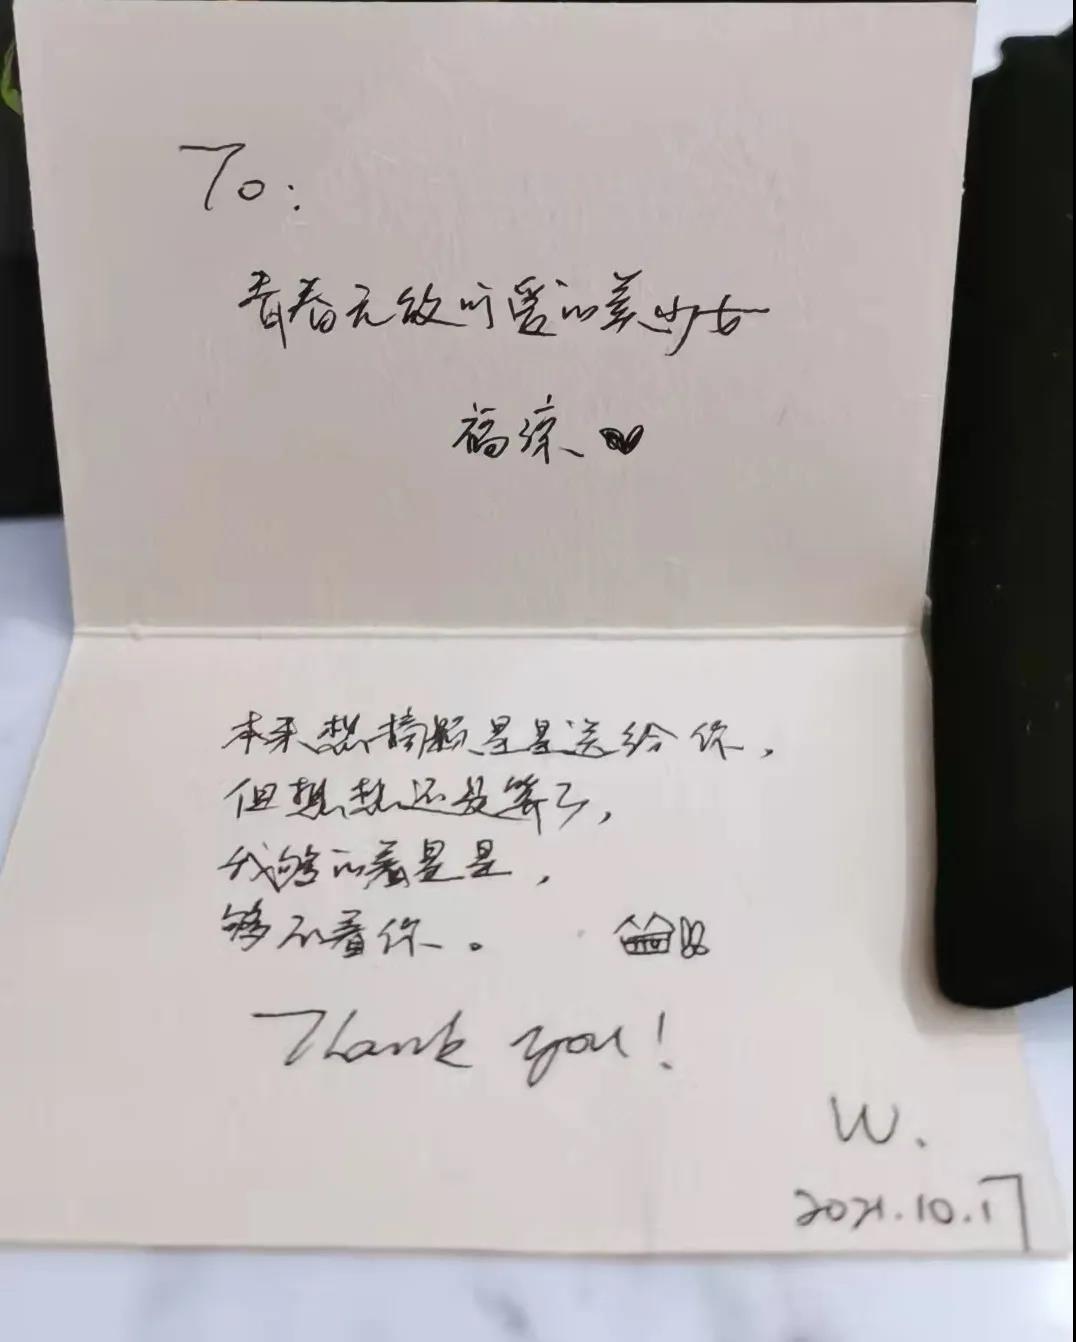 To:
青春无敌可爱的美少女
福琼
本来想摘颗星星送给你,
但想想还是算了,
我够的着星星,
够不着你。
Thank you!
W.
2021.10.17